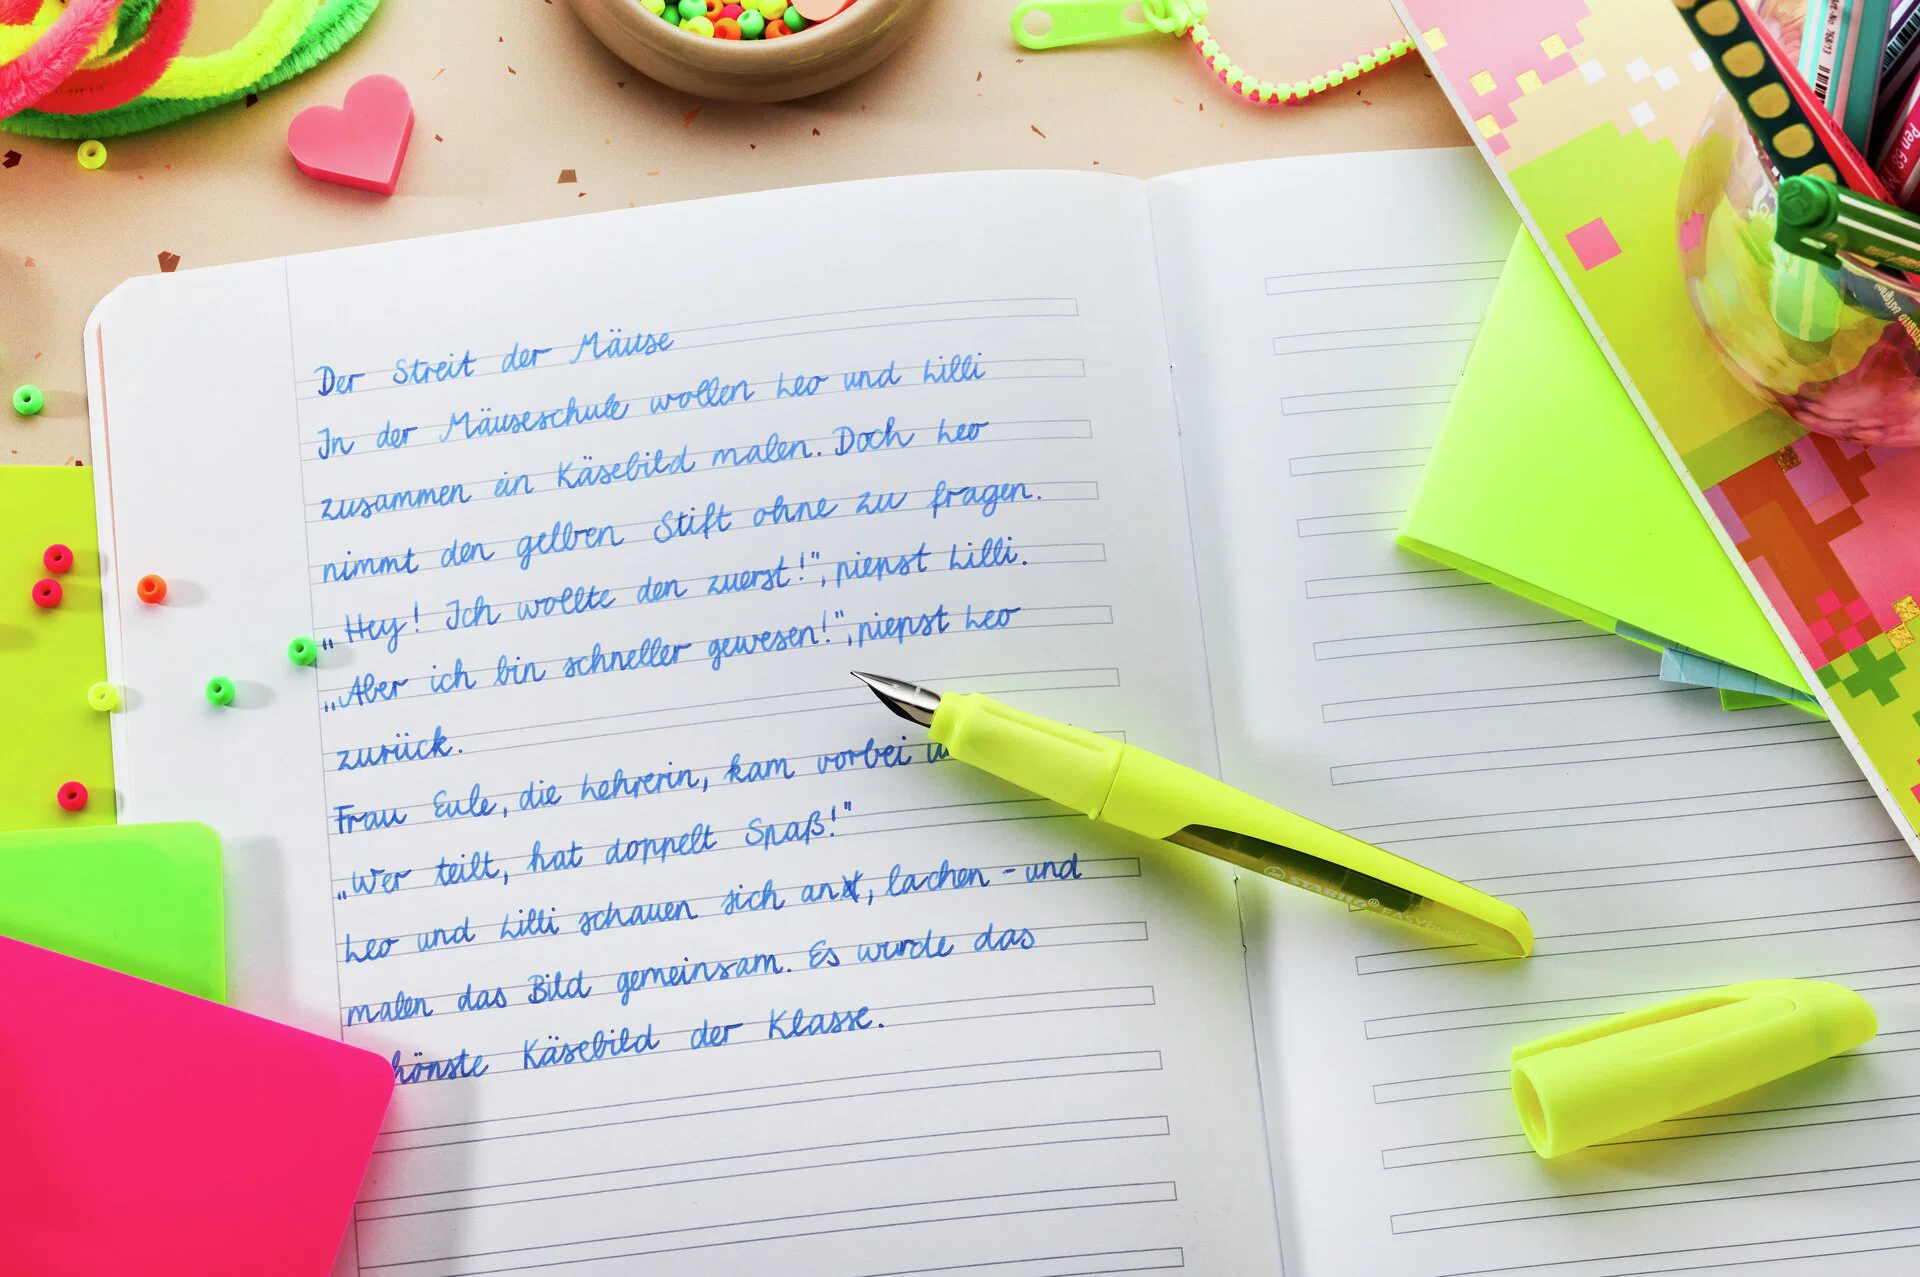 Der Streit der Mäuse
In der Mäuseschule wollen Leo und Lilli
zusammen ein Käsebild malen. Doch Leo
nimmt den gelben Stift ohne zu fragen.
„Hey! Ich wollte den zuerst!", piepst Lilli.
„Aber ich bin schneller gewesen!", piepst Leo
zurück.
Frau Eule, die Lehrerin, kam vorbei
„Wer teilt, hat doppelt Spaß!"
Leo und Lilli schauen sich an, lachen - und
malen das Bild gemeinsam. Es wurde das
hönste Käsebild der Klasse.
STABILO® EASYbuddy
Pen 68